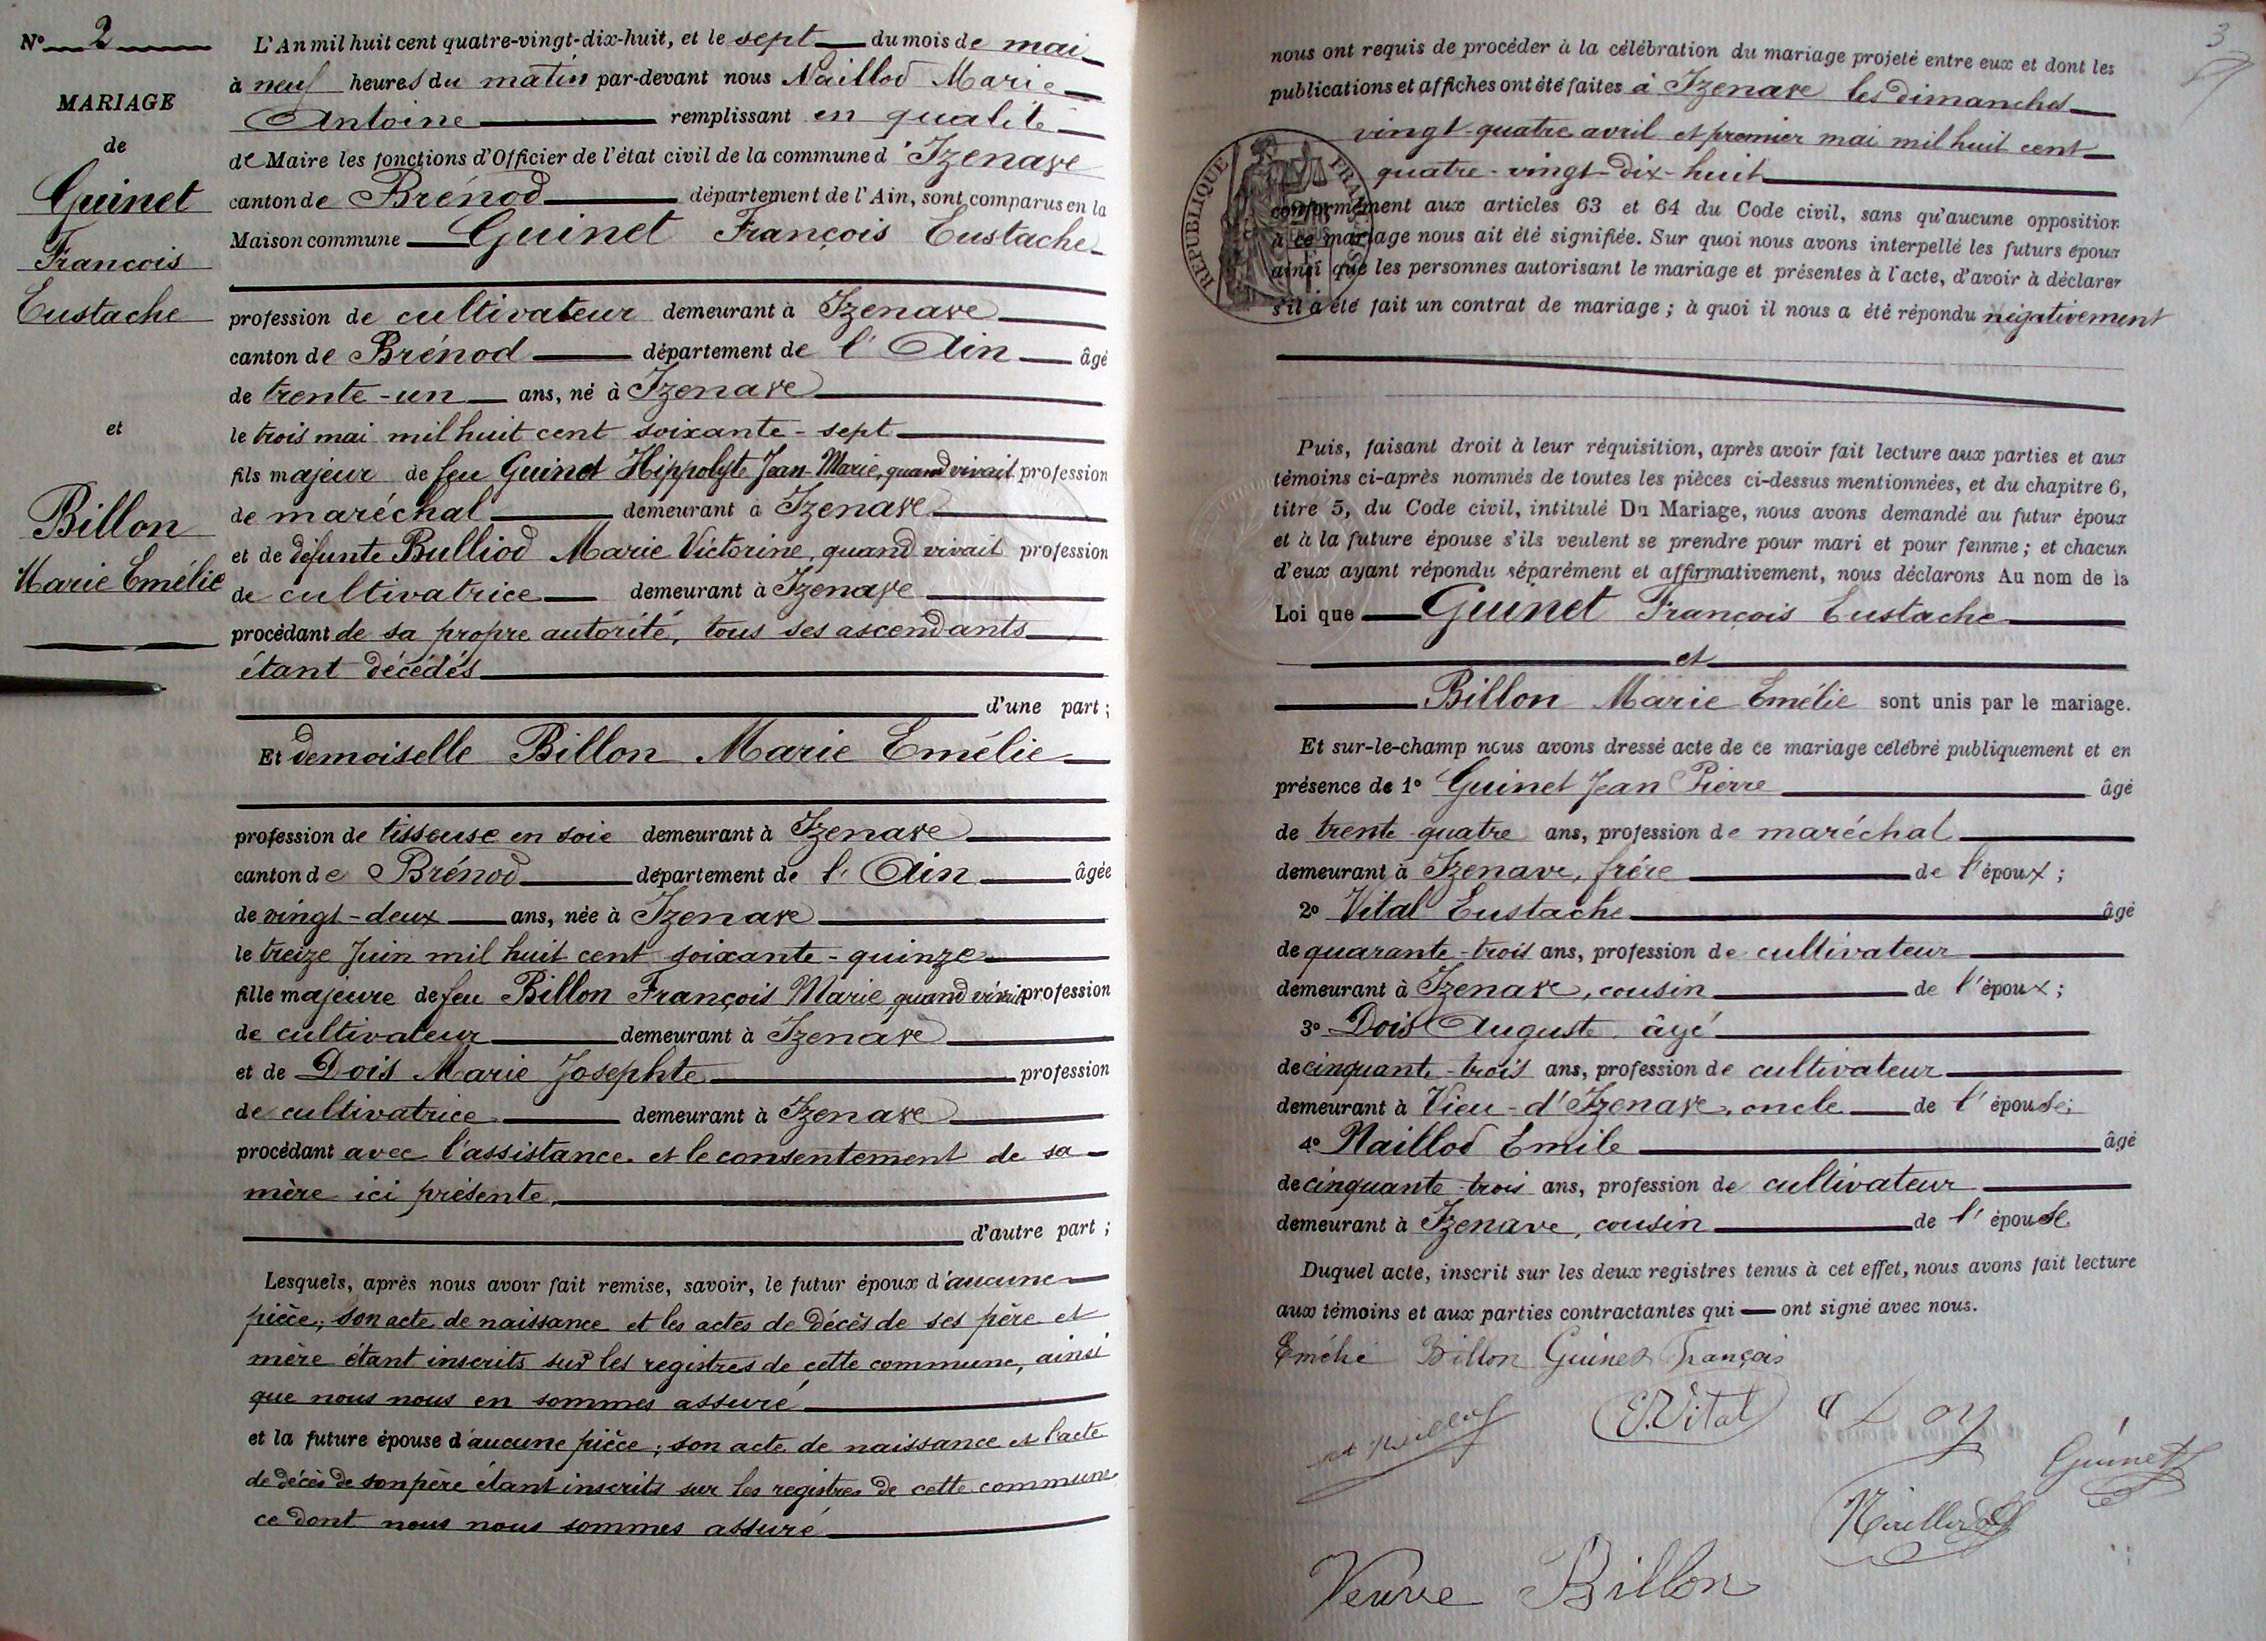 N° 2
MARIAGE
de
Guinet
François
Eustache
et
Billon
Marie Emélie
L'An mil huit cent quatre-vingt-dix-huit, et le sept du mois de mai
à neuf heures du matin par-devant nous Naillod Marie
Antoine remplissant en qualité
de Maire les fonctions d'Officier de l'état civil de la commune d'Izenave
canton de Brénod département de l'Ain, sont comparus en la
Maison commune Guinet François Eustache
profession de cultivateur demeurant à Izenave
canton de Brénod département de l'Ain âgé
de trente-un ans, né à Izenave
le trois mai mil huit cent soixante-sept
fils majeur de feu Guinet Hippolyte Jean-Marie, quand vivait profession
de maréchal demeurant à Izenave
et de défunte Bulliod Marie Victorine, quand vivait profession
de cultivatrice demeurant à Izenave
procédant de sa propre autorité, tous ses ascendants
étant décédés
d'une part ;
Et demoiselle Billon Marie Emélie
profession de tisseuse en soie demeurant à Izenave
canton de Brénod département de l'Ain âgée
de vingt-deux ans, née à Izenave
le treize Juin mil huit cent soixante-quinze
fille majeure de feu Billon François Marie, quand vivait profession
de cultivateur demeurant à Izenave
et de Dois Marie Josephte profession
de cultivatrice demeurant à Izenave
procédant avec l'assistance et le consentement de sa
mère ici présente,
d'autre part ;
Lesquels, après nous avoir fait remise, savoir, le futur époux d'aucune
pièce, son acte de naissance et les actes de décès de ses père et
mère étant inscrits sur les registres de cette commune, ainsi
que nous nous en sommes assuré
et la future épouse d'aucune pièce, son acte de naissance et l'acte
de décès de son père étant inscrits sur les registres de cette commune
ce dont nous nous sommes assuré
3
nous ont requis de procéder à la célébration du mariage projeté entre eux et dont les
publications et affiches ont été faites à Izenave les dimanches
vingt-quatre avril et premier mai mil huit cent
quatre-vingt-dix-huit
RÉPUBLIQUE FRANÇAISE
conformément aux articles 63 et 64 du Code civil, sans qu'aucune opposition
à ce mariage nous ait été signifiée. Sur quoi nous avons interpellé les futurs époux
ainsi que les personnes autorisant le mariage et présentes à l'acte, d'avoir à déclarer
s'il a été fait un contrat de mariage ; à quoi il nous a été répondu négativement
Puis, faisant droit à leur réquisition, après avoir fait lecture aux parties et aux
témoins ci-après nommés de toutes les pièces ci-dessus mentionnées, et du chapitre 6,
titre 5, du Code civil, intitulé Du Mariage, nous avons demandé au futur époux
et à la future épouse s'ils veulent se prendre pour mari et pour femme ; et chacun
d'eux ayant répondu séparément et affirmativement, nous déclarons Au nom de la
Loi que Guinet François Eustache
et
Billon Marie Emélie sont unis par le mariage.
Et sur-le-champ nous avons dressé acte de ce mariage célébré publiquement et en
présence de 1° Guinet Jean Pierre âgé
de trente-quatre ans, profession de maréchal
demeurant à Izenave, frère de l'époux ;
2° Vital Eustache âgé
de quarante-trois ans, profession de cultivateur
demeurant à Izenave, cousin de l'époux ;
3° Dois Auguste, âgé
de cinquante-trois ans, profession de cultivateur
demeurant à Vieu-d'Izenave, oncle de l'épouse ;
4° Naillod Emile âgé
de cinquante-trois ans, profession de cultivateur
demeurant à Izenave, cousin de l'épouse
Duquel acte, inscrit sur les deux registres tenus à cet effet, nous avons fait lecture
aux témoins et aux parties contractantes qui ont signé avec nous.
Emélie Billon Guinet François
E. Vital
Guinet
Naillod
Veuve Billon